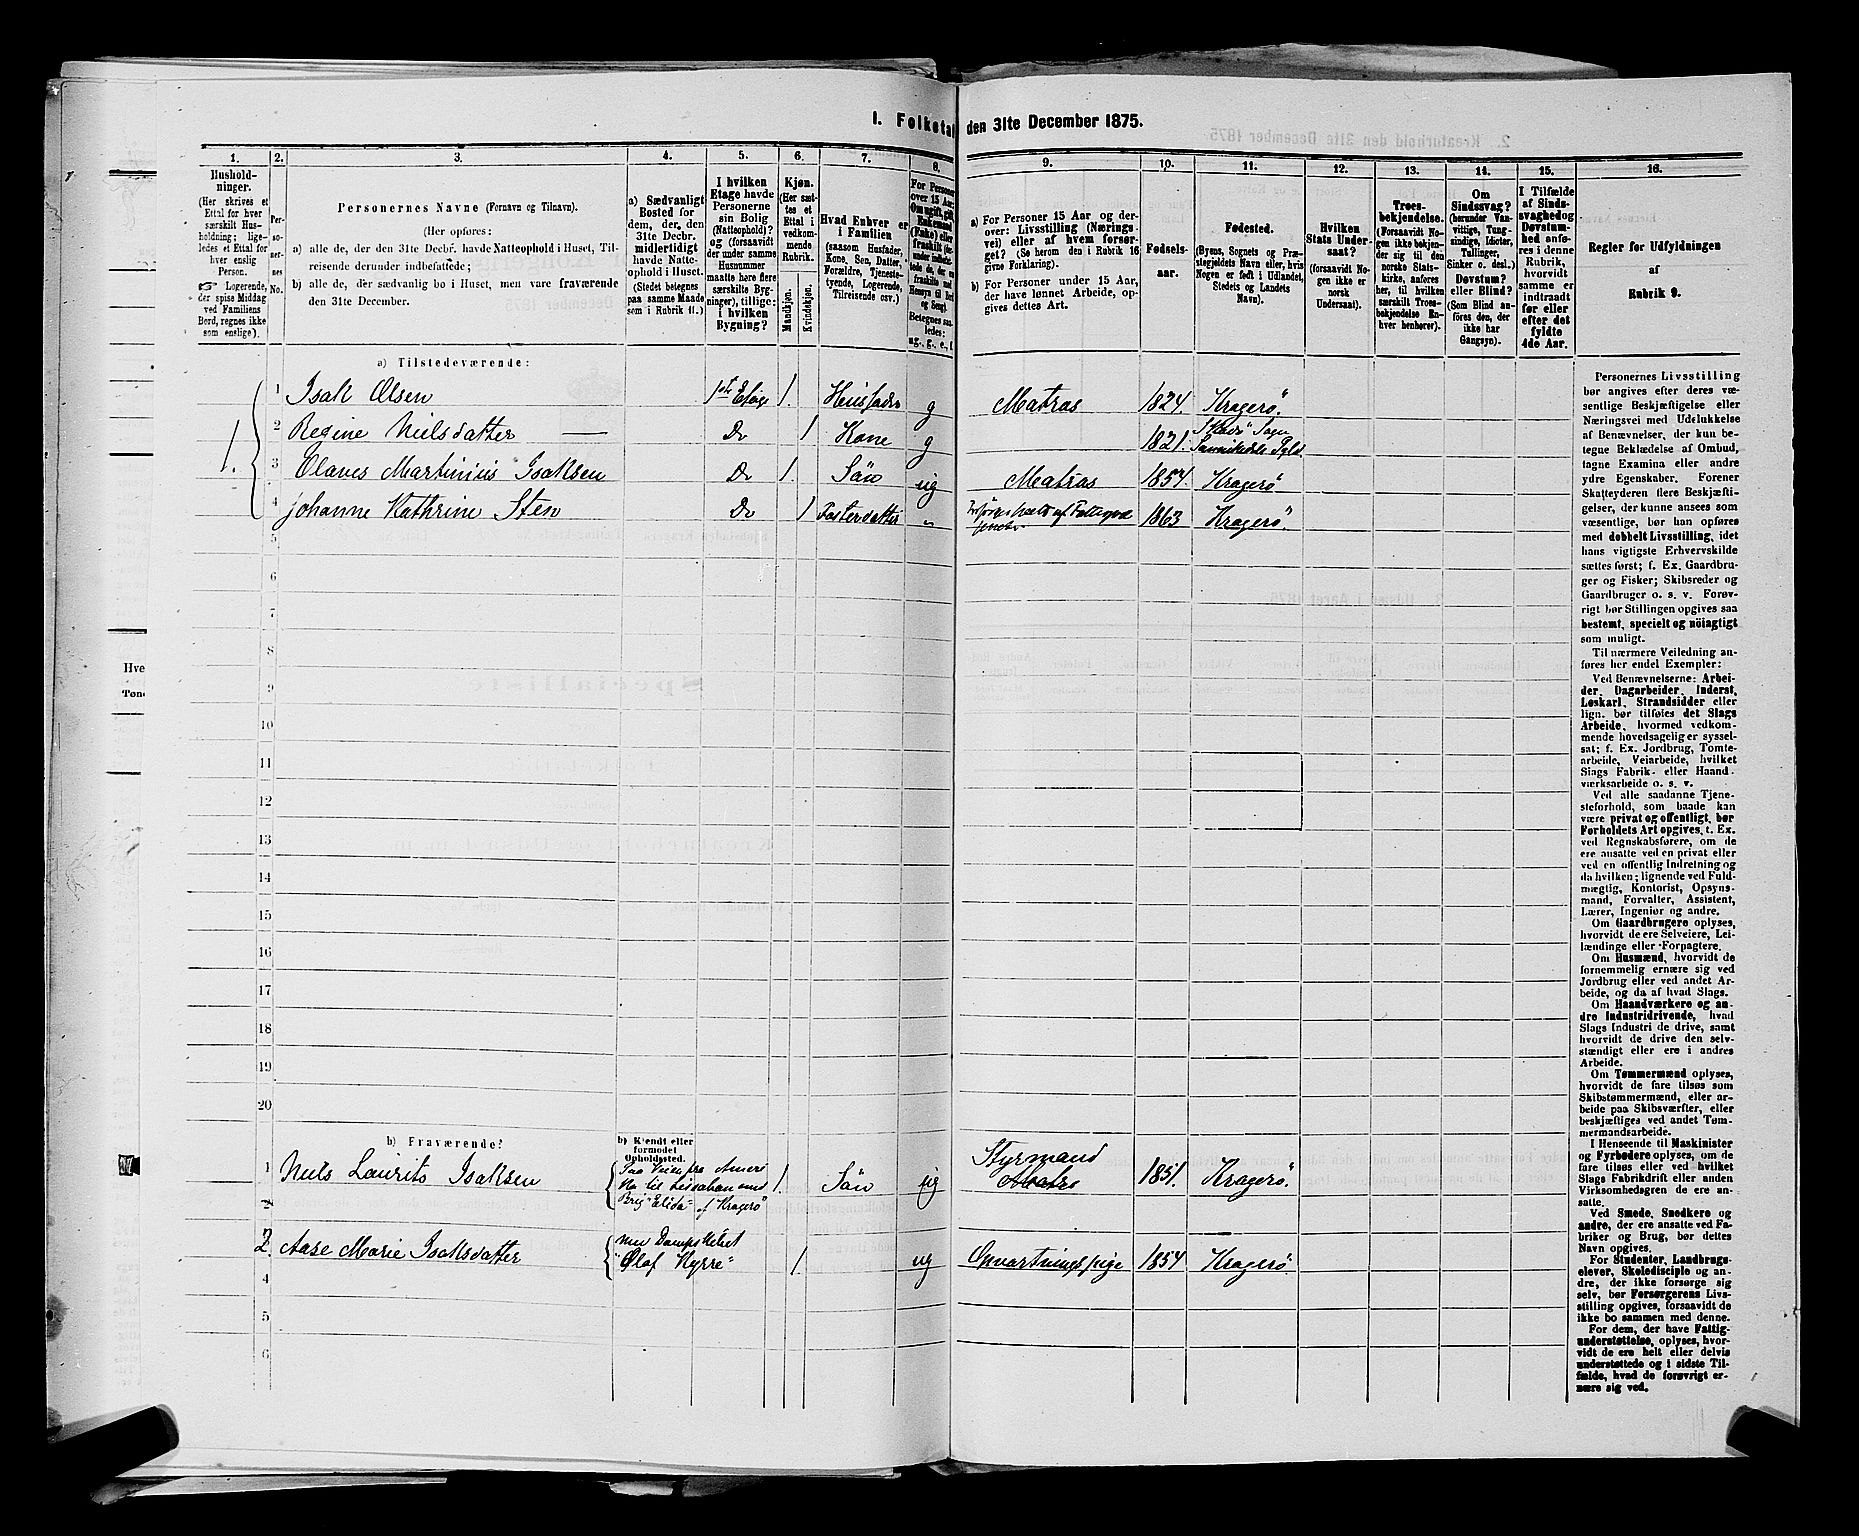 1. Folketal den 31te December 1875.
1. 2. 3. 4. 5. 6. 7. 8. 9. 10. 11. 12. 13. 14. 15. 16.
Hushold-
ninger.
(Her skrives et
Ettal for hver
særskilt Hus-
holdning; lige-
ledes et Ettal for
hver enslig
Person.
Logerende,
der spise Middag
ved Familiens
Bord, regnes ikke
som enslige).
Per-
so-
ner-
nes
No.
Personernes Navne (Fornavn og Tilnavn).
(Her opføres:
a) alle de, der den 31te Decbr. havde Natteophold i Huset, Til-
reisende derunder indbefattede;
b) alle de, der sædvanlig bo i Huset, men vare fraværende
den 31te December.
a) Sædvanligt
Bosted for
dem, der, den
31te Decbr.
midlertidigt
havde Natte-
ophold i Huset.
(Stedet betegnes
paa samme Maade
som i Rubrik 11.)
I hvilken
Etage havde
Personerne
sin Bolig
(Natteophold)?
og (forsaavidt
der under samme
Husnummer
maatte høre flere
særskilte Byg-
ninger), tillige:
i hvilken
Bygning?
Kjøn.
(Her sæt-
tes et
Ettal i
vedkom-
mende
Rubrik.
Mandkjøn.
Kvindekjøn.
Hvad Enhver er
i Familien
(saasom Husfader,
Kone, Søn, Datter,
Forældre, Tjeneste-
tyende, Logerende,
Tilreisende osv.)
For Personer
over 15 Aar:
Om ugift, gift,
Enkemand
(Enke) eller
fraskilt
Betegnes saa-
ledes:
ug., g., e., f.
a) For Personer 15 Aar og der-
over: Livsstilling (Nærings-
vei) eller af hvem forsør-
get? (Se herom den i Rubrik 16
givne Forklaring).
b) For Personer under 15 Aar,
der have lønnet Arbeide, op-
gives dettes Art.
Fødsels-
aar.
Fødested.
(Byens, Sognets og Præ-
stegjeldets Navn eller, hvis
Nogen er født i Udlandet,
Stedets og Landets
Navn).
Hvilken
Stats Under-
saat?
(forsaavidt No-
gen ikke er
norsk
Undersaat).
Troes-
bekjendelse.
(Forsaavidt No-
gen ikke bekjen-
der sig til den
norske Stats-
kirke, anføres
her, til hvilken
særskilt Troes-
bekjendelse En-
hver henhører).
Om
Sindssvag?
(herunder Van-
vittige, Tung-
sindige, Idioter,
Tullinger,
Sinker o. desl.)
Døvstum?
eller Blind?
(Som Blind an-
føres den, der
ikke har
Gangsyn).
I Tilfælde
af Sinds-
svaghed og
Døvstum-
hed anfø-
res i denne
Rubrik,
hvorvidt
samme er
indtraadt
før eller
efter det
fyldte
4de Aar.
Regler for Udfyldningen
af
Rubrik 9.
a) Tilstedeværende:
1. 1 Isak Olsen 1ste Etage 1. Huusfader g Matros 1824. Kragerø.
2 Regine Nielsdatter — Do 1 Kone g 1821. Skaatø Sogn Sannikedals Pgld.
3 Olaves Martinius Isaksen Do 1. Søn ug Matros 1854. Kragerø
4 Johanne Kathrine Sten Do 1 Fosterdatter " 1863 Kragerø.
5
6
7
8
9
10
11
12
13
14
15
16
17
18
19
20
b) Fraværende:
b) Kjendt eller
formodet
Opholdssted.
1 Niels Laurits Isaksen Paa Veien fra Ameri
ka til Lissabon med
Brig "Elida" af Kragerø 1. Søn ug Styrmand Matros 1851. Kragerø.
2
2. Aase Marie Isaksdatter med Dampskibet
"Olaf Kyrre" 1. ug Opvartningspige 1854 Kragerø.
4
5
6
Personernes Livsstilling
bør angives efter deres væ-
sentlige Beskjæftigelse eller
Næringsvei med Udelukkelse
af Benævnelser, der kun be-
tegne Beklædelse af Ombud,
tagne Examina eller andre
ydre Egenskaber. Forener
Skatteyderen flere Beskjæfti-
gelser, der kunne ansees som
væsentlige, bør han opføres
med dobbelt Livsstilling, idet
hans vigtigste Erhvervskilde
sættes først; f. Ex. Gaardbru-
ger og Fisker; Skibsreder og
Gaardbruger o. s. v. Forøv-
rigt bør Stillingen opgives saa
bestemt, specielt og nöiagtigt
som muligt.
Til nærmere Veiledning an-
føres her endel Exempler:
Ved Benævnelserne: Arbei-
der, Dagarbeider, Inderst,
Løskarl, Strandsidder eller
lign. bør tilføies det Slags
Arbeide, hvormed vedkom-
mende hovedsagelig er syssel-
sat; f. Ex. Jordbrug, Tomte-
arbeide, Veiarbeide, hvilket
Slags Fabrik- eller Haand-
værksarbeide o. s. v.
Ved alle saadanne Tjene-
steforhold, som baade kan
være privat og offentligt, bør
Forholdets Art opgives, t. Ex.
ved Regnskabsførere, om de
ere ansatte ved en privat eller
ved en offentlig Indretning og
da hvilken; lignende ved Fuld-
mægtig, Kontorist, Opsyns-
mand, Forvalter, Assistent,
Lærer, Ingeniør og andre.
Om Gaardbrugere oplyses,
hvorvidt de ere Selveiere, Lei-
lændinge eller Forpagtere.
Om Husmænd, hvorvidt de
fornemmelig ernære sig ved
Jordbrug eller ved andet Ar-
beide, og da af hvad Slags.
Om Haandværkere og an-
dre Industridrivende, hvad
Slags Industri de drive, samt
hvorvidt de drive den selv-
stændigt eller ere i andres
Arbeide.
Om Tømmermænd oplyses,
hvorvidt de fare tilsøs som
Skibstømmermænd, eller ar-
beide paa Skibsværfter, eller
beskjæftiges ved andet Tøm-
mermandsarbeide.
I Henseende til Maskinister
og Fyrbødere oplyses, om de
fare tilsøs eller ved hvilket
Slags Fabrikdrift eller anden
Virksomhedsgren de ere an-
satte.
Ved Smede, Snedkere og
andre, der ere ansatte ved Fa-
briker og Brug, bør dettes
Navn opgives.
For Studenter, Landbrugs-
elever, Skoledisciple og an-
dre, der ikke forsørge sig
selv, bør Forsørgerens Livs-
stilling opgives, forsaavidt de
ikke bo sammen med denne.
For dem, der have Fattig-
understøttelse, oplyses, hvor-
vidt de ere helt eller delvis
understøttede og i sidste Til-
fælde, hvad de forøvrigt er-
nære sig ved.
Hve
Tøn